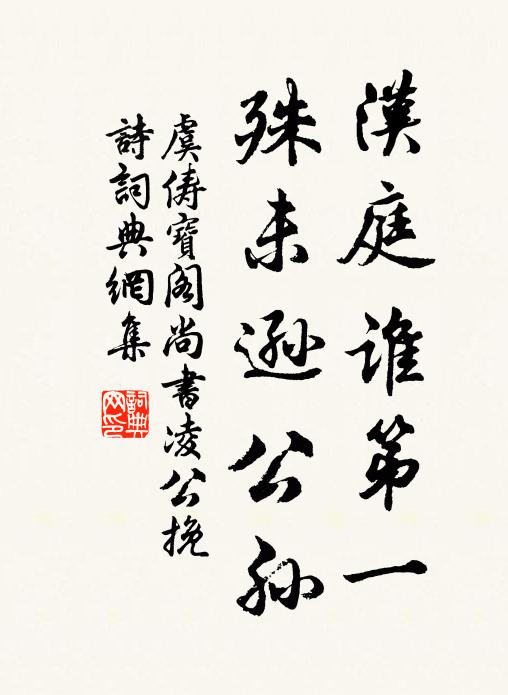 漢庭誰第一
殊未遜公孫
虞儔寶閣尚書凌公挽
詩詞典網集
詞典
网印